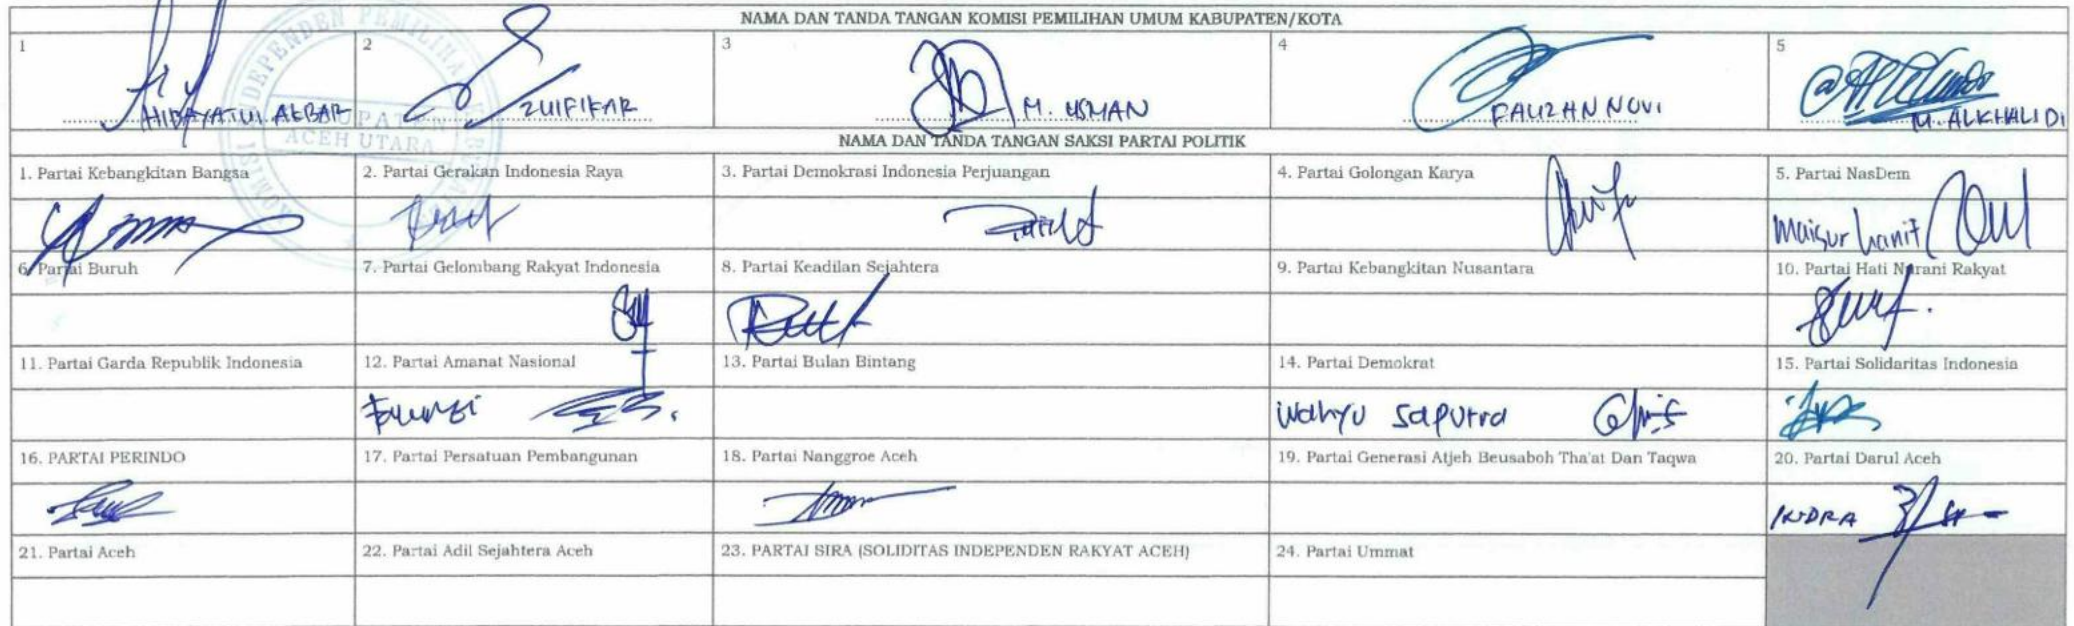 NAMA DAN TANDA TANGAN KOMISI PEMILIHAN UMUM KABUPATEN/KOTA
1 2 3 4 5
HIDAYATUL AKBAR ZULFIKAR M. USMAN FAUZAN NOVI M. ALKHALIDI
KABUPATEN
ACEH UTARA
NAMA DAN TANDA TANGAN SAKSI PARTAI POLITIK
1. Partai Kebangkitan Bangsa 2. Partai Gerakan Indonesia Raya 3. Partai Demokrasi Indonesia Perjuangan 4. Partai Golongan Karya 5. Partai NasDem
Maisur hanif
6. Partai Buruh 7. Partai Gelombang Rakyat Indonesia 8. Partai Keadilan Sejahtera 9. Partai Kebangkitan Nusantara 10. Partai Hati Nurani Rakyat
11. Partai Garda Republik Indonesia 12. Partai Amanat Nasional 13. Partai Bulan Bintang 14. Partai Demokrat 15. Partai Solidaritas Indonesia
Wahyu Saputra
16. PARTAI PERINDO 17. Partai Persatuan Pembangunan 18. Partai Nanggroe Aceh 19. Partai Generasi Atjeh Beusaboh Tha'at Dan Taqwa 20. Partai Darul Aceh
INDRA
21. Partai Aceh 22. Partai Adil Sejahtera Aceh 23. PARTAI SIRA (SOLIDITAS INDEPENDEN RAKYAT ACEH) 24. Partai Ummat